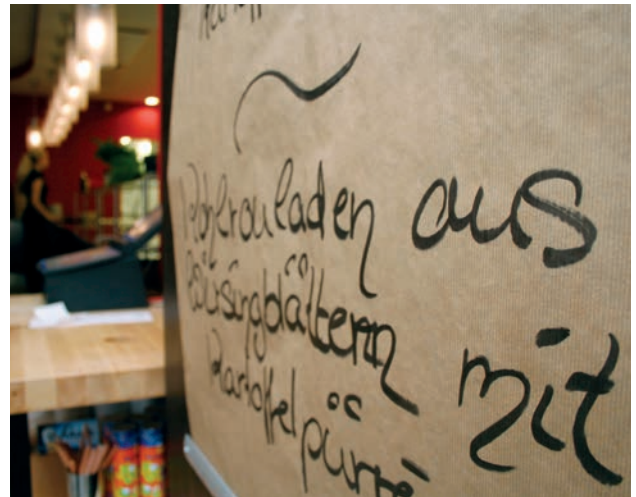 Kohlrouladen aus
Wirsingblättern mit
Kartoffelpürre